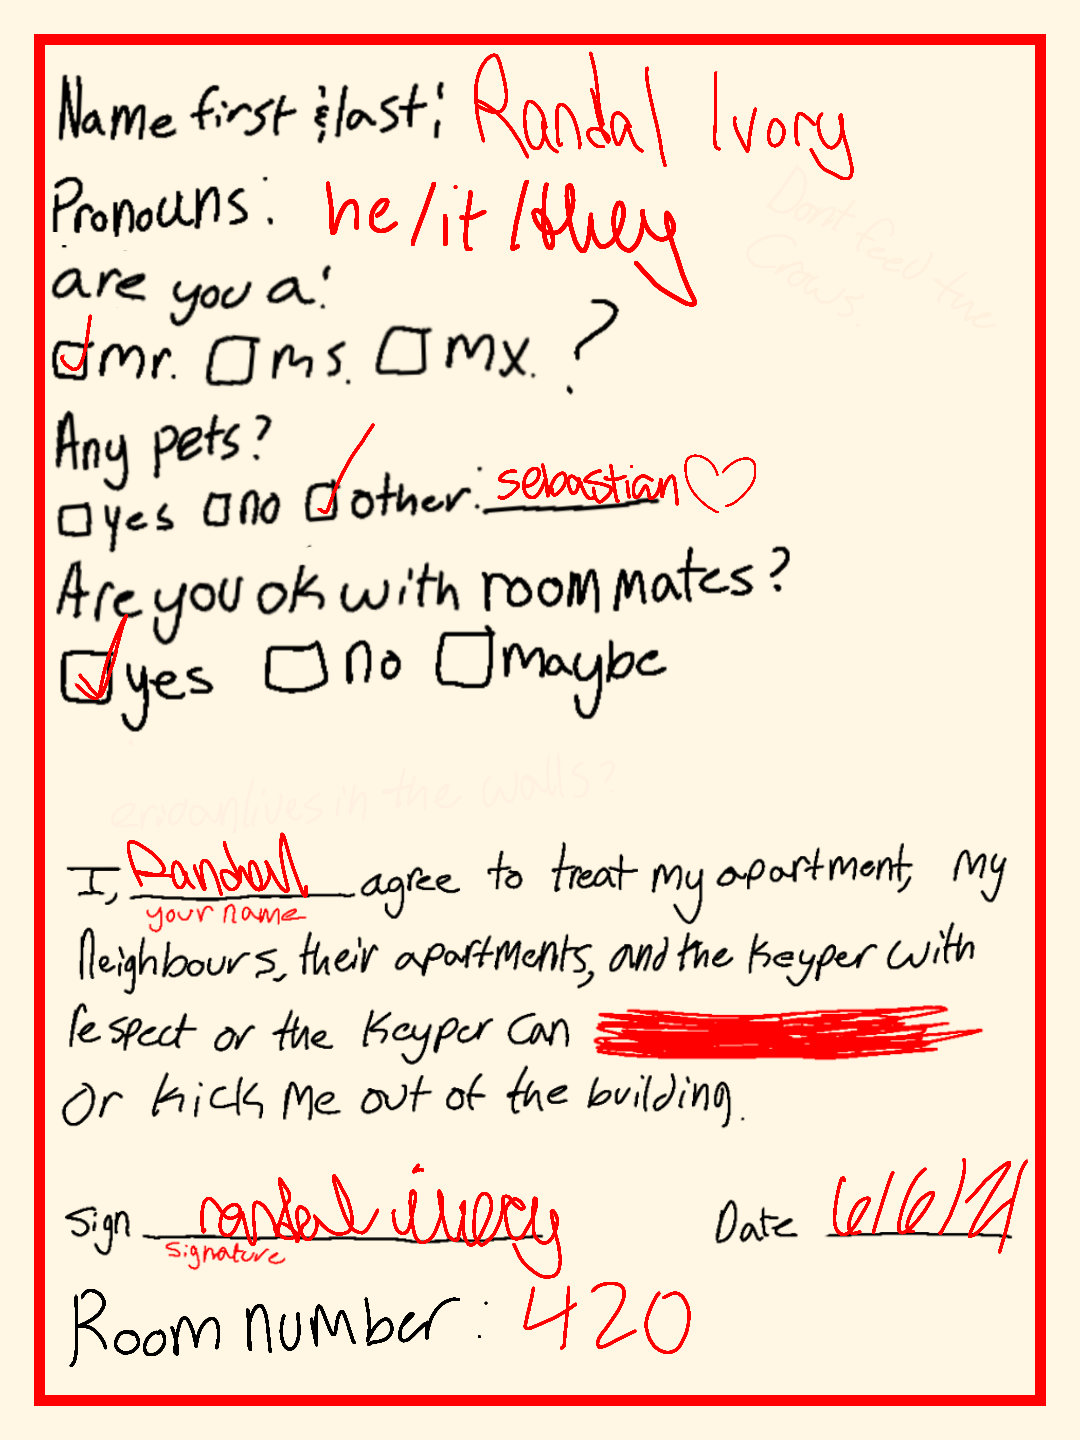 Name first & last: Randal Ivory
Pronouns: he/it/they
Dont feed the
Crows.
are you a:
mr. ms. mx. ?
Any pets?
yes no other: sebastian
Are you ok with roommates?
yes no maybe
lives in the walls?
I, Randal agree to treat my apartment, my
your name
Neighbours, their apartments, and the Keyper with
respect or the Keyper can
Or kick me out of the building.
Sign randal ivory Date 6/6/21
signature
Room number: 420